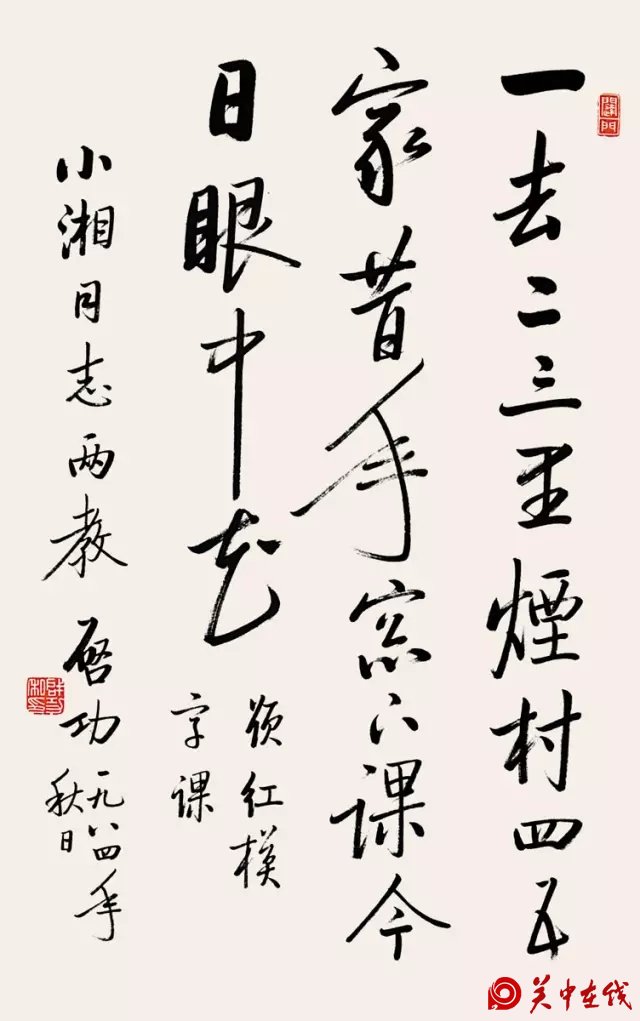 一去二三里煙村四五
家昔年窓下課今
日眼中花
红模
字課
小湘同志两教 启功 一九八四年
秋日
关中在线